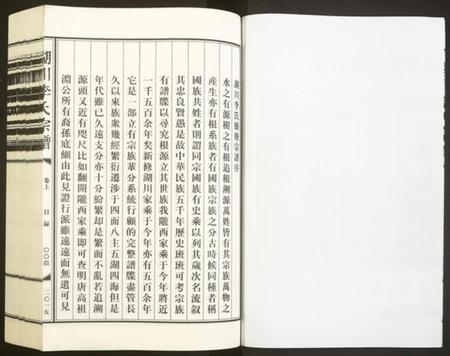 湖川李氏續修宗譜序
水之有源樹之有根追根溯源萬姓皆有其宗族萬物之
產生亦有根系族者有國族宗族之分古時候同種者稱
國族共姓者則謂同宗國族有史乘以列其歲次名流叙
其忠良賢愚是故中華民族五千年歷史班班可考宗族
有譜牒以尋究根源立其世族我隴西家乘于今年將近
一千五百余年矣新修湖川家乘于今年亦有五百余年
它是一部立有宗族輩分系統行顧的完整譜牒盡管長
久以來族衆幾經繁衍遷涉于四面八主五湖四海但是
年代雖已久遠支分亦十分紛繁却是繁而不亂若追溯
源頭又近有咫尺比如翻開隴西家乘即可查明唐高祖
淵公所有裔孫底細由此見證行派雖遠遠而無遺可見
湖川李氏宗譜
卷上
目録
〇〇四
二〇一五